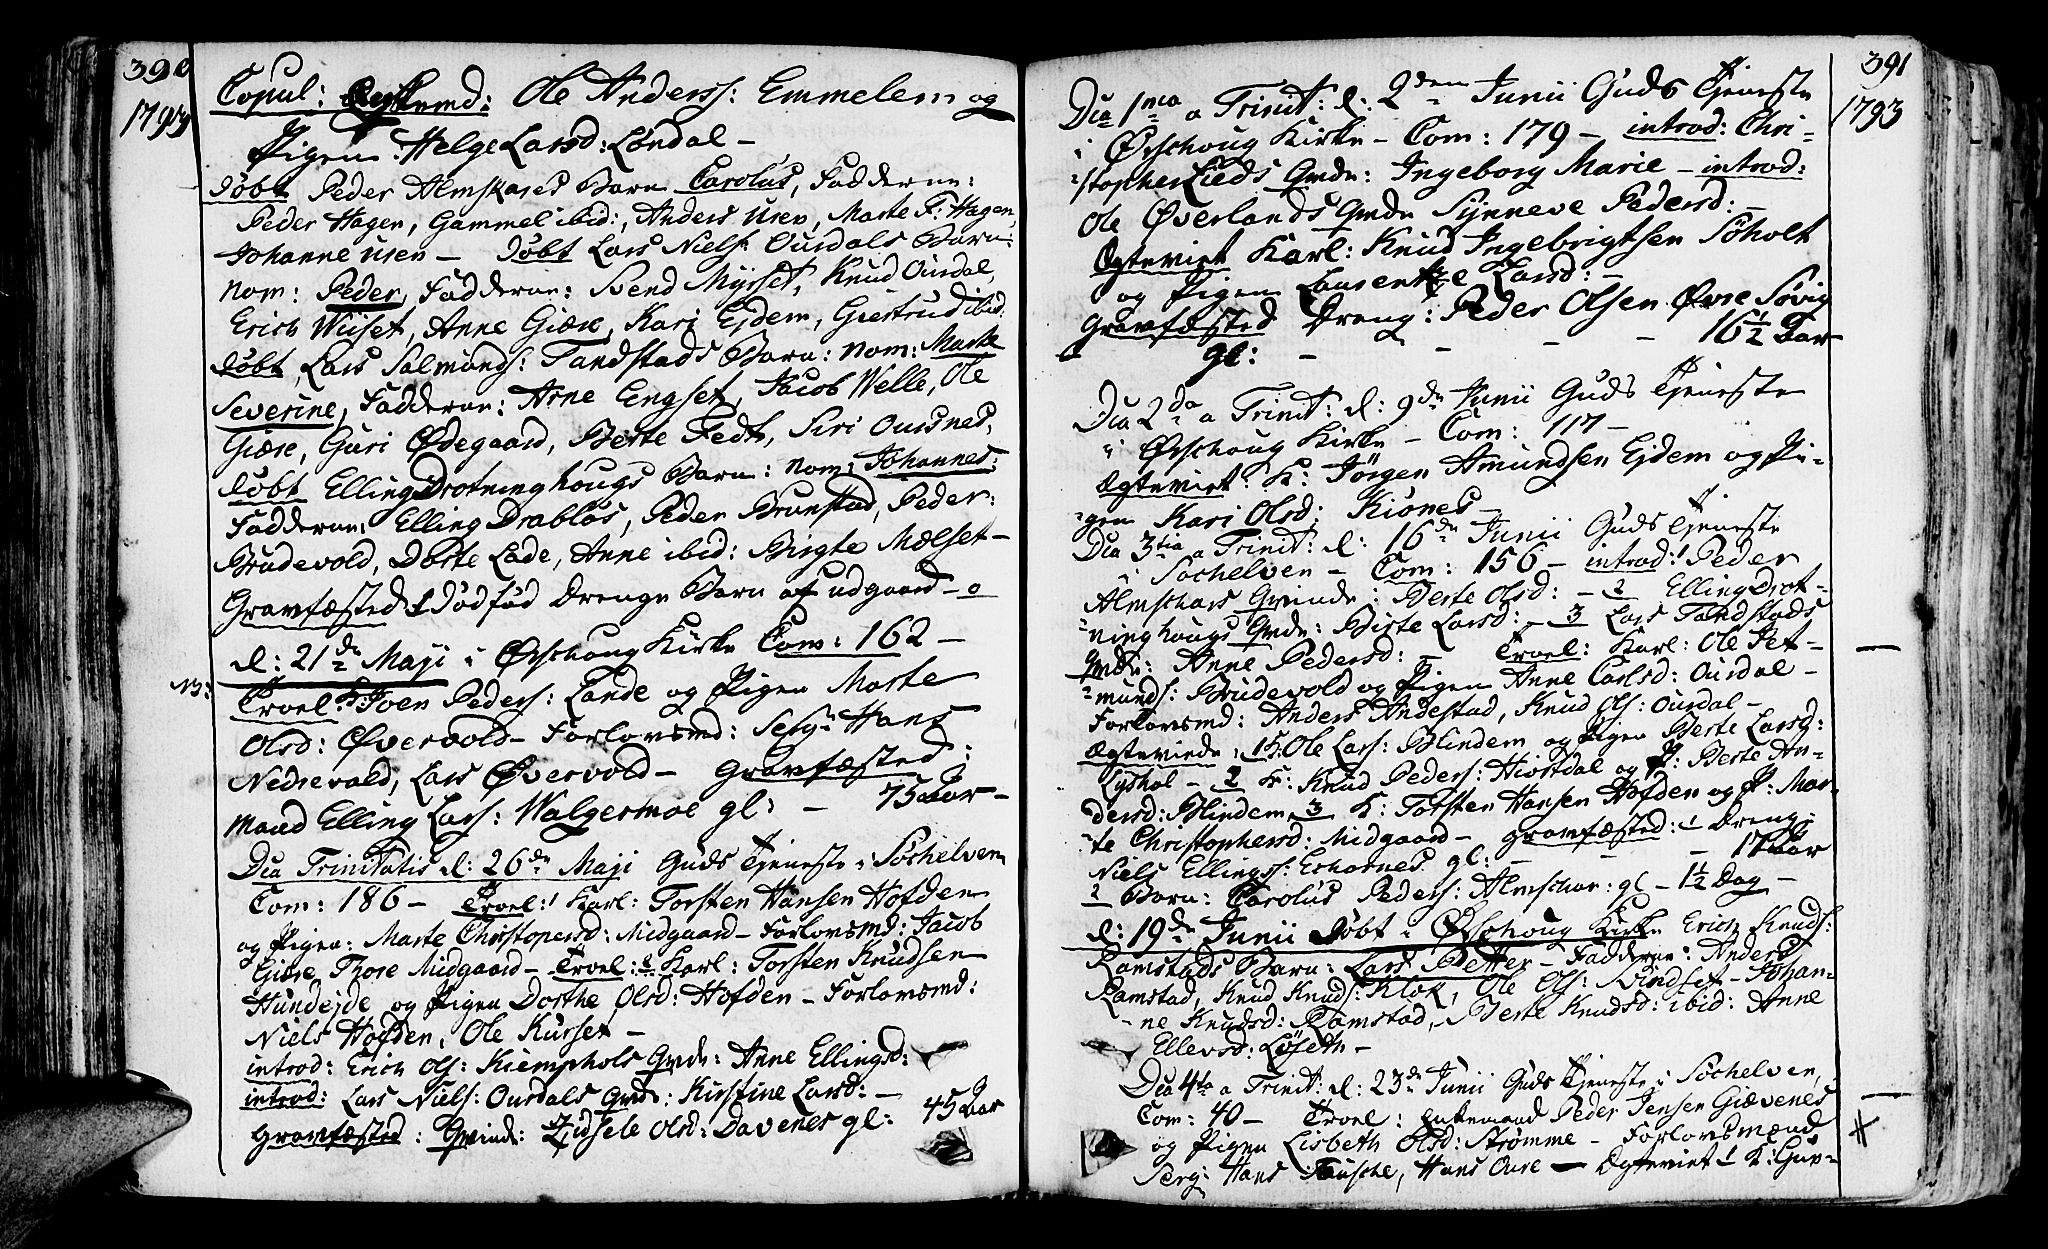 390
1793
Copul: Ole Anderss: Emmelem og
Pigen Helge Larsd: Løndal –
døbt Peder Almskares Barn Carolus, Fadderne:
Peder Hagen, Gammel ibid:, Anders Uren, Marte F: Hagen,
Johanne Uren – døbt Lars Niels: Ourdals Barn:
Nom: Peder, Fadderne: Svend Mysset, Knud Ourdal,
Erich Wiiset, Anne Giære, Kari Ejdem, Giertrud ibid:
døbt, Lars Salmunds: Tandstads Barn: Nom: Marte
Severine, Fadderne: Arne Engset, Jacob Welle, Ole
Giære, Guri Ødegaard, Berte Fedt, Siri Oursnes,
døbt Elling Drotninghougs Barn: Nom: Johannes:
Fadderne, Elling Drabløs, Peder Brunstad, Peder:
Brudevold, Dorte Lade, Anne ibid: Birgte Mælset –
Gravfæsted 1 Dødfød Drenge Barn af udgaard – 0
d: 21de Maji i Ørschoug Kirke Com: 162 –
NB: Trovl: K: Joen Peders: Lande og Pigen Marte
Olsd: Øvervold – Forlovsmd: Serg: Hans
Nedrevald, Lars Øvervold – Gravfæsted:
Mand Elling Lars: Walgermoe gl: – 75 Aar –
Dia Trinitatis d: 26de Maji Guds Tjeneste i Søchelven
Com: 186 – Trovl: 1 Karl: Torsten Hansen Hofden
og Pigen: Marte Christopersd: Midgaard – Forlovsmd: Jacob
Giære, Thore Midgaard – Trovl: 2 Karl: Torsten Knudsen
Hundejde og Pigen Dorthe Olsd: Hofden – Forlovsmd:
Niels Hofden, Ole Kurset –
introd: Erich Ols: Kiemphols Qvde: Anne Ellingsd:
introd: Lars Niels: Ourdals Qvde: Kirstine Larsd: –
Gravfæsted: Qvinde: Zidsele Olsd: Davenes gl: 45 Aar
391
1793
Dia 1ma a Trinit: d: 2den Junii Guds Tjeneste
i Ørschoug Kirke – Com: 179 – introd: Chri-
stopher Lieds Qvde: Ingeborg Marie – introd:
Ole Øverlands Qvde Synneve Pedersd: –
Ægteviet Karl: Knud Ingebrigtsen Soholt
og Pigen Larsd: –
Gravfæsted Dreng: Peder Olsen Øvre Søvig
gl: – – – – 16½ Aar
Dia 2da a Trinit: d: 9de Junii Guds Tjeneste
i Ørschoug Kirke – Com: 117 –
Ægteviet: K: Jørgen Amundsen Ejdem og Pi-
gen Kari Olsd: Kiønes –
Dia 3tia a Trinit: d: 16de Junii Guds Tjeneste
i Søchelven – Com: 156 – introd: 1 Peder
Almschars Qvinde: Berte Olsd: – 2 Elling Drot-
ninghougs Qvde: Birte Larsd: – 3 Lars Tandstads
Qvde: Anne Pedersd: – Trovl: Karl: Ole Pet-
munds: Brudevold og Pigen Anne Carlsd: Ourdal –
Forlovsmd: Anders Andestad, Knud Ols: Ourdal –
Ægteviede: 1 Ole Lars: Blindem og Pigen Berte Larsd:
Lyshol – 2 K: Knud Peders: Hiortdal og P: Berte An-
dersd: Blindem 3 K: Torsten Hansen Hofden og P: Mar-
te Christophersd: Midgaard – Gravfæsted: 1 Dreng:
Niels Ellings: Echornes gl: – – – 17 Aar
2 Barn: Carolus Peders: Almschar: gl – 1½ Dag –
d: 19de Junii døbt i Ørschoug Kirke Erich Knuds:
Ramstads Barn: Lars Petter – Fadderne: Anders
Ramstad, Knud Knuds: Klok, Ole Ols: Vindset – Johan-
ne Knudsd: Ramstad, Berte Knudsd: ibid: Anne
Ellevsd: Løseth –
Dia 4ta a Trinit: d: 23de Junii Guds Tjeneste i Søchelven,
Com: 40 – Trovl: Enkemand Peder Jensen Giævenes
og Pigen Lisbeth Olsd: Strømme – Forlovsmænd
Serg: Hans Tusche, Hans Oure – Ægteviet 1 K: Gun-